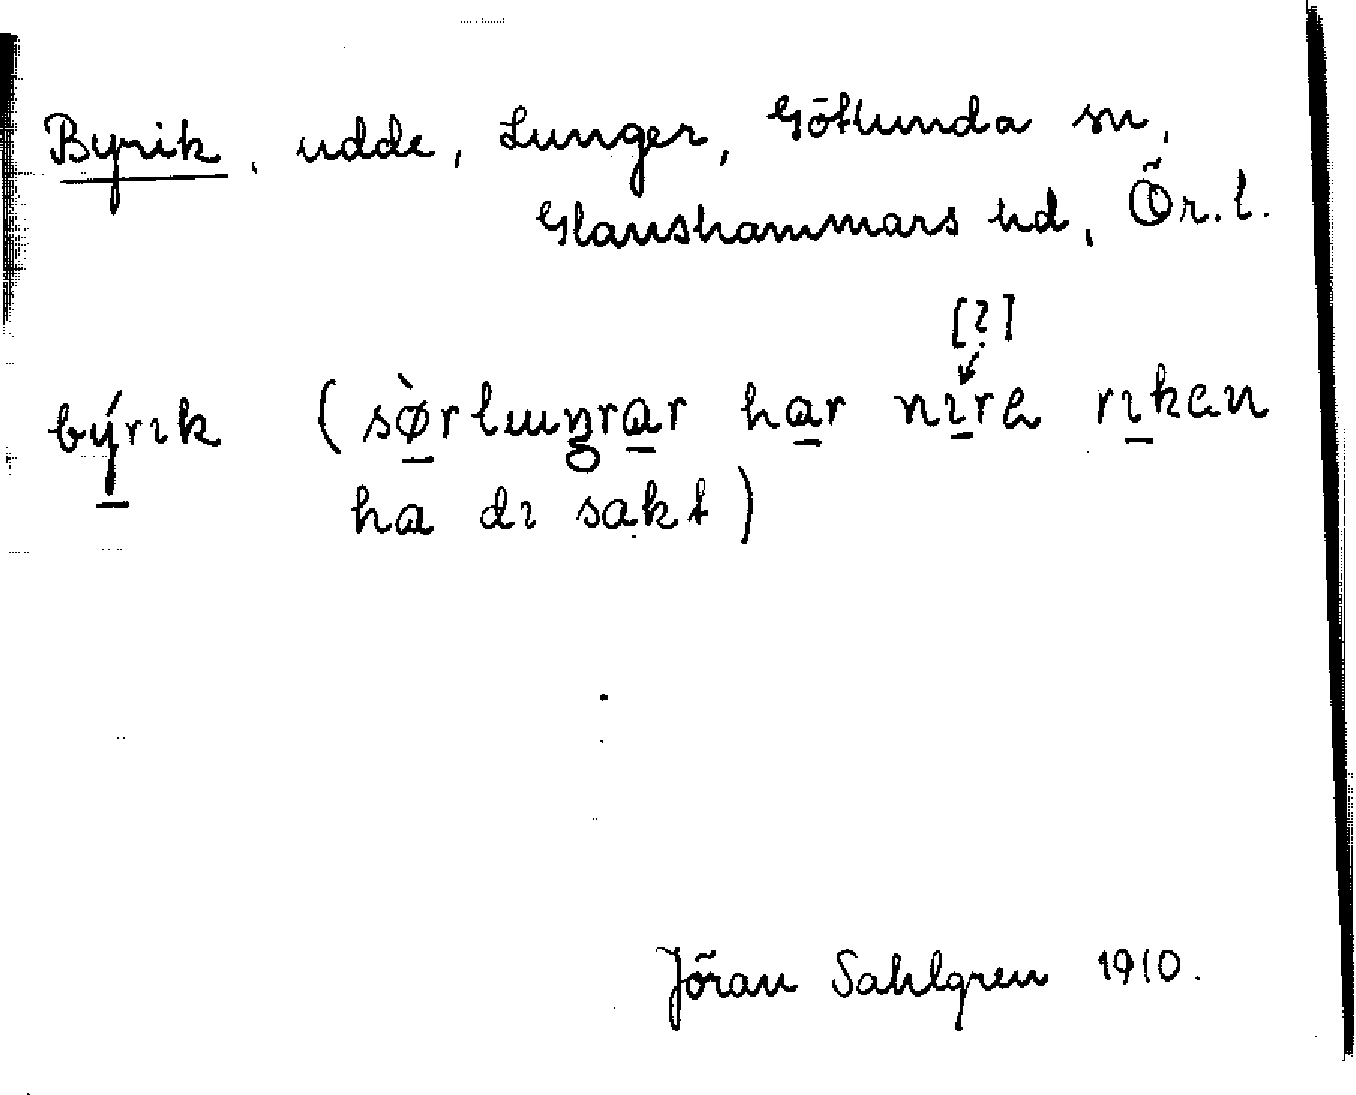 Byrik, udde, Lunger, Götlunda sn,
Glanshammars hd, Ör. l.
[?]
bý̱rık (sø̱̀rluŋra̱r ha̱r nı̱re rı̱ken
ha dı sakt)
Jöran Sahlgren 1910.